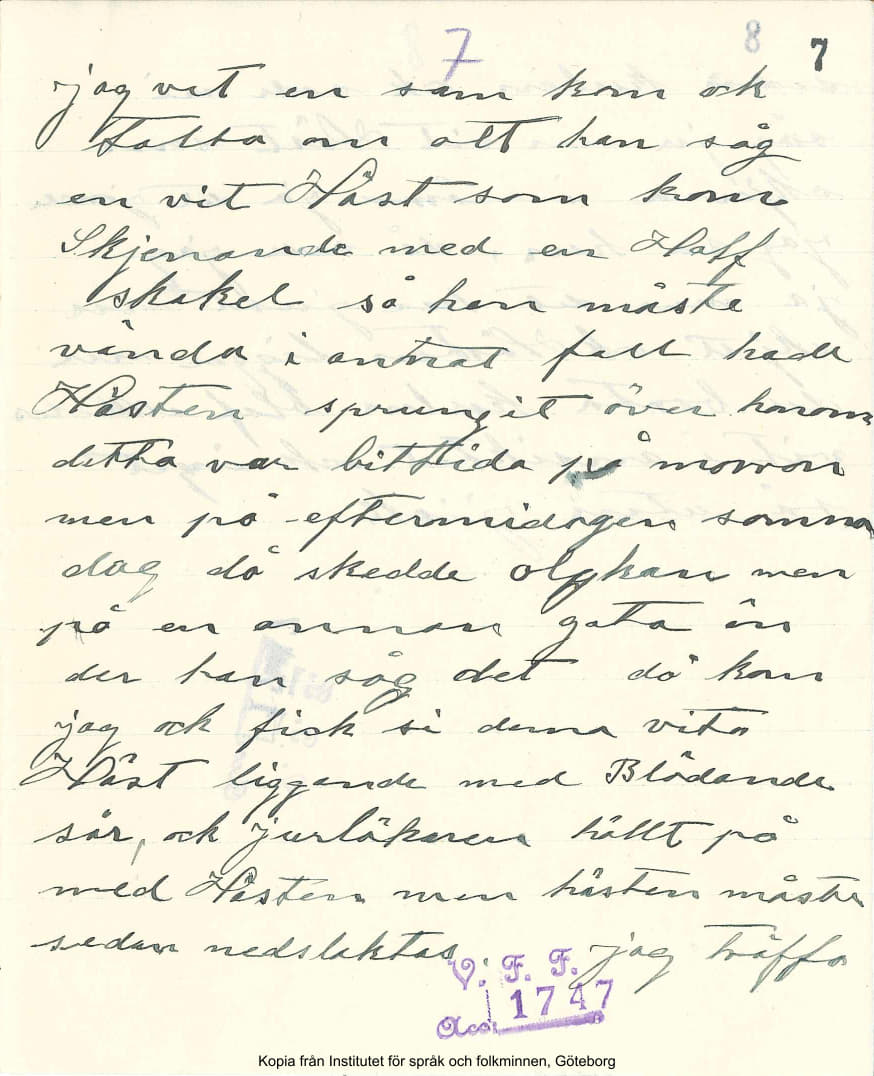 7 8 7
jag vet en som kom ock
talta om att han såg
en vit Häst som kom
Skjenande med en Half
skakel så han måste
vända i antrat fall hade
Hästen sprungit över honom
detta var bittida på morron
men på eftermidagen samma
dag då skedde olykan men
på en annan gata än
der han såg det då kom
jag ock fick si denna vita
Häst liggande med Blödande
sår, ock jurläkaren höllt på
med Hästen men hästen måste
sedan nedslaktas jag träffa
V. F. F.
Acc. 1747
Kopia från Institutet för språk och folkminnen, Göteborg